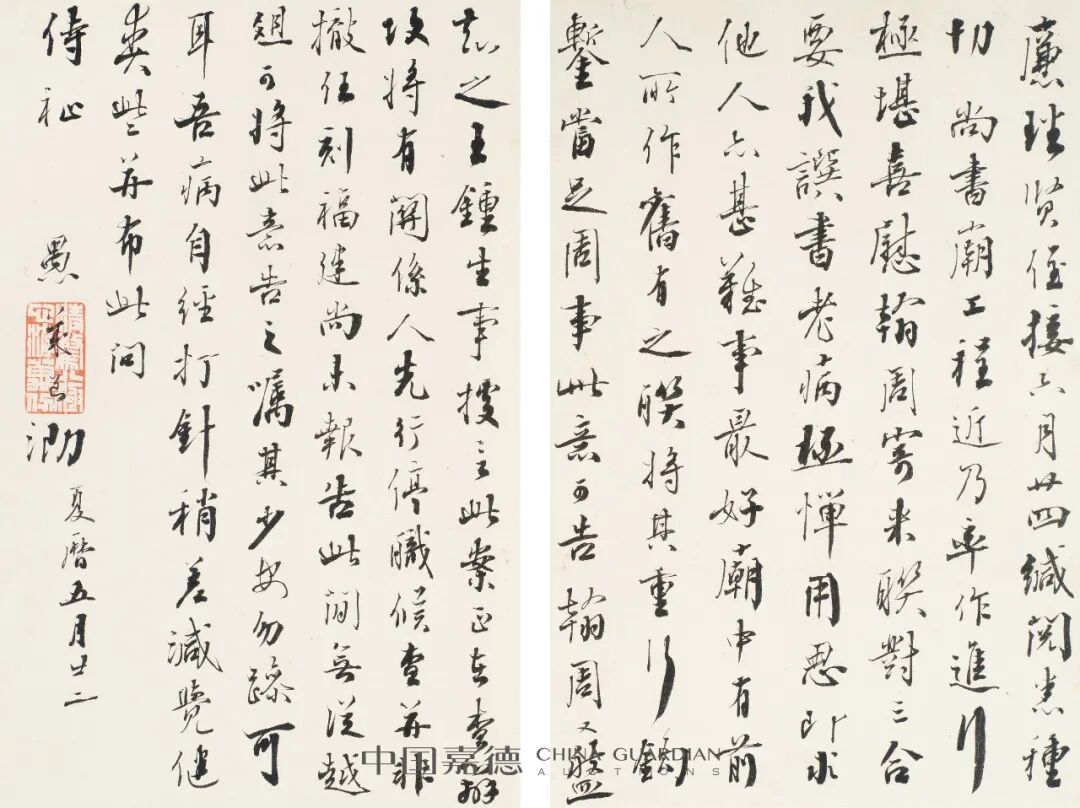 廉瑾贤侄接六月廿四缄阅悉种
切尚书庙工程近乃乘作进行
极堪喜慰翰周寄来联对三合
要我譔书老病极惮用思即求
他人亦甚难事最好庙中有前
人所作旧有之联将其重行钩
錾当足周事此意可告翰周又盛
志之王锺生事接言此案正在查办
后将有关系人先行停职候查并非
撤任刻福建尚未报告此间无从越
俎可将此意告之嘱其少安勿躁可
耳吾病自经打针稍差减觉健
爽些并布此问
侍祉
愚
泐
夏历五月廿二
中国嘉德 CHINA GUARDIAN
AUCTIONS